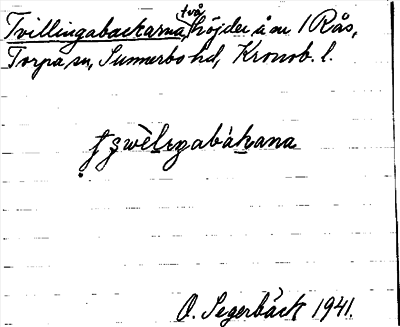 Tvillingabackarna, två höjder å m 1 Rås,
Torpa sn, Sunnerbo hd, Kronob. l.
O. Segerbäck 1941.